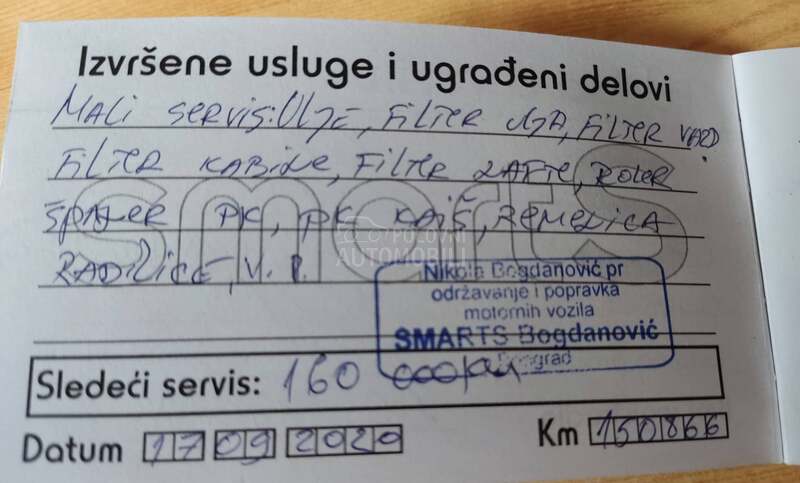 Izvršene usluge i ugrađeni delovi
MALI SERVIS: ULJE, FILTER ULJA, FILTER VAZD.
FILTER KABINE, FILTER NAFTE, ROLER
ŠPANER PK, PK KAIŠ, REMENICA
RADILICE, V. P.
smarts
POLOVNI
AUTOMOBILI
Nikola Bogdanović pr
održavanje i popravka
motornih vozila
SMARTS Bogdanović
Beograd
Sledeći servis: 160 000
Datum 17 09 2020
Km 150866